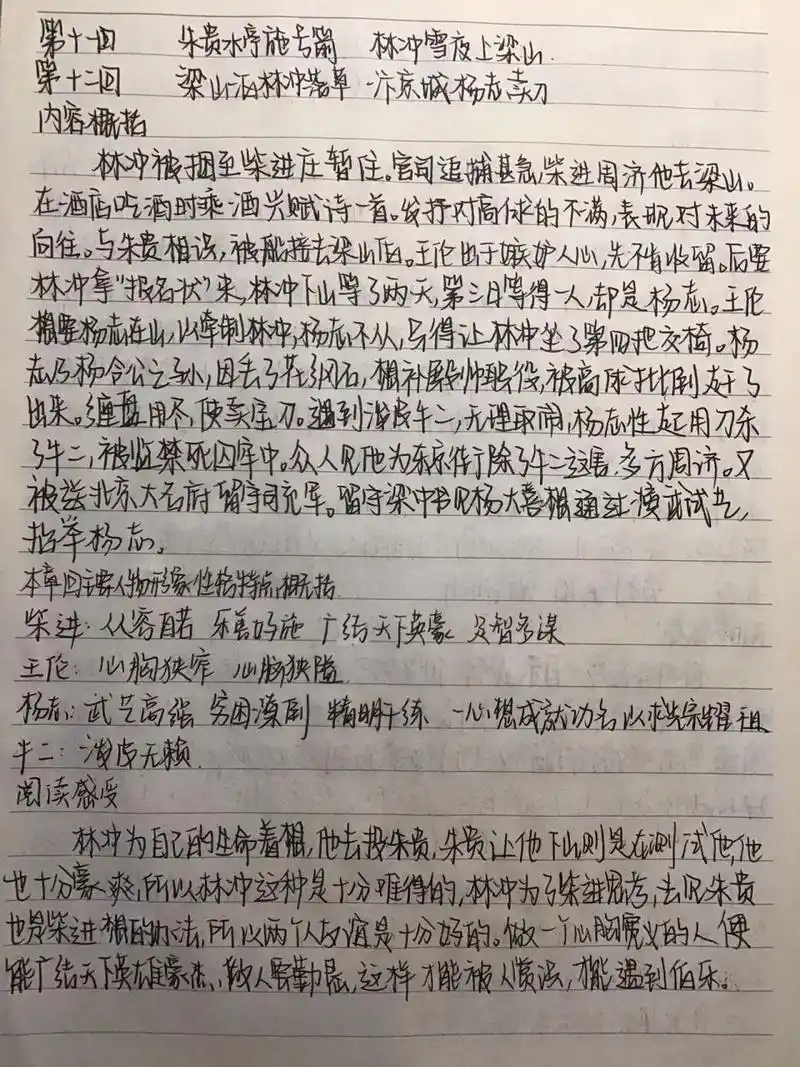 第十一回 朱贵水亭施号箭 林冲雪夜上梁山
第十二回 梁山泊林冲落草 汴京城杨志卖刀
内容概括
林冲被捆至柴进庄暂住。官司追捕甚急,柴进周济他去梁山。
在酒店吃酒时乘酒兴赋诗一首。发抒对高俅的不满,表现对未来的
向往。与朱贵相识,被船接去梁山泊。王伦出于嫉妒人心,先不肯收留。后要
林冲拿“投名状”来,林冲下山等了两天,第三日等得一人,却是杨志。王伦
想要杨志在山,以牵制林冲,杨志不从,只得让林冲坐了第四把交椅。杨
志乃杨令公之孙,因丢了花纲石,想补殿帅职役,被高俅批倒赶了
出来。缠盘用尽,便卖宝刀。遇到泼皮牛二,无理取闹,杨志性起用刀杀
了牛二,被监禁死囚牢中。众人见他为东京街除了牛二这害,多方周济。又
被送北京大名府留守司充军。留守梁中书见杨大喜想通过演武试艺,
抬举杨志。
本章回主要人物形象性格特点概括
柴进:从容自若 乐善好施 广结天下英豪 足智多谋
王伦:心胸狭窄 心肠狭隘
杨志:武艺高强 穷困潦倒 精明干练 一心想成就功名以求光宗耀祖
牛二:泼皮无赖
阅读感受
林冲为自己的生命着想,他去投朱贵,朱贵让他下山则是在测试他,他
也十分豪爽,所以林冲这种是十分难得的,林冲为了柴进思考,去见朱贵
也是柴进想的办法,所以两个人友谊是十分好的。做一个心胸宽义的人便
能广结天下英雄豪杰,做人要勤恳,这样才能被人赏识,才能遇到伯乐。